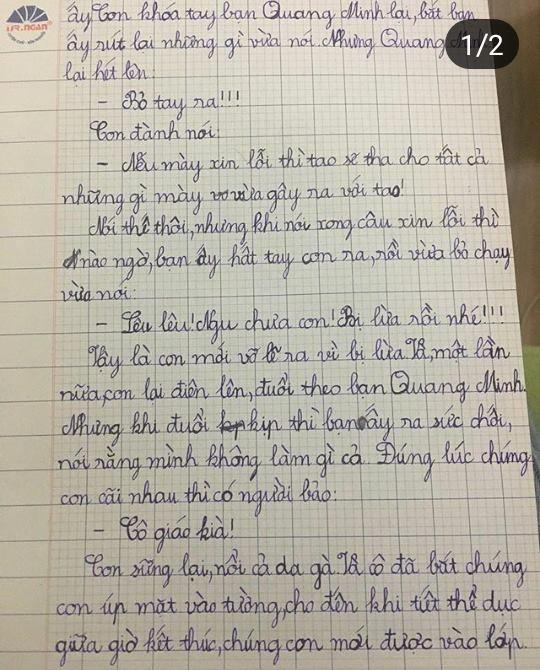 1/2
ấy. Con khóa tay bạn Quang Minh lại, bắt bạn
ấy rút lại những gì vừa nói. Nhưng Quang
lại hét lên:
- Bỏ tay ra!!!
Con đành nói:
- Nếu mày xin lỗi thì tao sẽ tha cho tất cả
những gì mày vừa gây ra với tao!
Nói thế thôi, nhưng khi nói xong câu xin lỗi thì
nào ngờ, bạn ấy hất tay con ra, rồi vừa bỏ chạy
vừa nói:
- Lêu lêu! Ngu chưa con! Bị lừa rồi nhé!!!
Vậy là con mới vỡ lẽ ra vì bị lừa. Và, một lần
nữa, con lại điên lên, đuổi theo bạn Quang Minh.
Nhưng khi đuổi kịp thì bạn ấy ra sức chối,
nói rằng mình không làm gì cả. Đúng lúc chúng
con cãi nhau thì có người bảo:
- Cô giáo kìa!
Con sững lại, nổi cả da gà. Và cô đã bắt chúng
con úp mặt vào tường, cho đến khi tiết thể dục
giữa giờ kết thúc, chúng con mới được vào lớp.